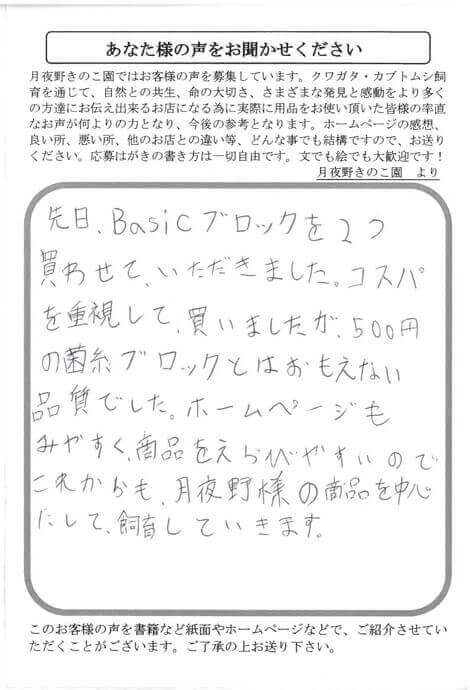 あなた様の声をお聞かせください
月夜野きのこ園ではお客様の声を募集しています。クワガタ・カブトムシ飼
育を通じて、自然との共生、命の大切さ、さまざまな発見と感動をより多く
の方達にお伝え出来るお店になる為に実際に用品をお使い頂いた皆様の率直
なお声が何よりの力となり、今後の参考となります。ホームページの感想、
良い所、悪い所、他のお店との違い等、どんな事でも結構ですので、お送り
ください。応募はがきの書き方は一切自由です。文でも絵でも大歓迎です！
月夜野きのこ園　より
先日、Basicブロックを2つ
買わせて、いただきました。コスパ
を重視して、買いましたが、500円
の菌糸ブロックとはおもえない
品質でした。ホームページも
みやすく、商品をえらびやすいので
これからも、月夜野様の商品を中心
にして、飼育していきます。
このお客様の声を書籍など紙面やホームページなどで、ご紹介させてい
ただくことがございます。ご了承の上お送り下さい。